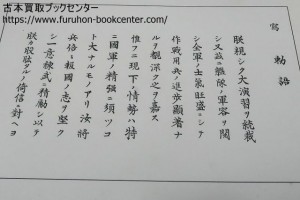 古本買取ブックセンター
https://www.furuhon-bookcenter.com/
寫
勅語
朕親シク大演習ヲ統裁
シ又茲ニ艦隊ノ軍容ヲ閲
シ全軍ノ士氣旺盛ニシテ
作戰用兵ノ進歩顯著ナ
ルヲ觀深ク之ヲ嘉ス
惟フニ現下ノ情勢ハ特
ニ國軍ノ精強ニ須ツコ
ト大ナルモノアリ汝將
兵倍々報國ノ志ヲ堅ク
シ一意練武ニ精勵シ以テ
朕カ股肱タルノ倚信ニ對ヘヨ